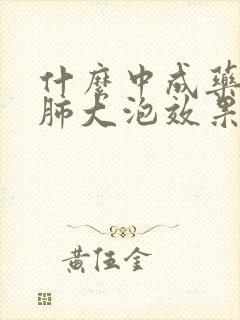 什麼中成藥
肺大泡效果
黃伍金